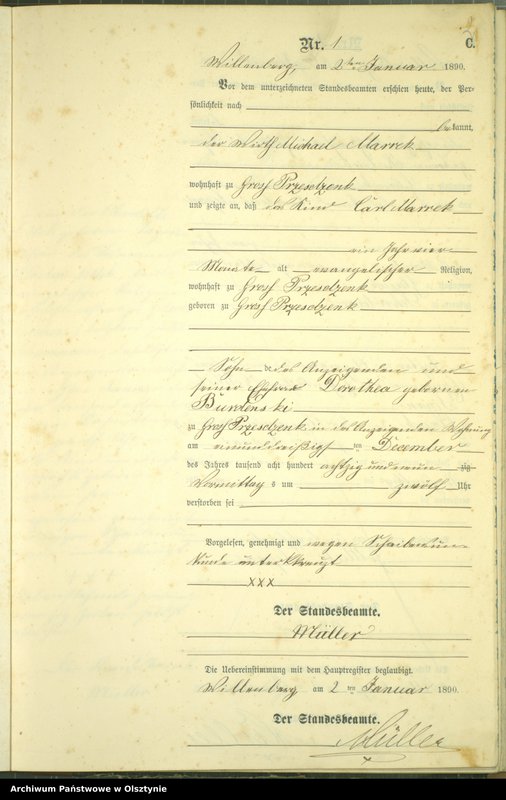 C.
Nr. 1
Willenberg, am 2ten Januar 1890.
Vor dem unterzeichneten Standesbeamten erschien heute, der Per-
sönlichkeit nach
bekannt,
der Wirth Michael Marrek
wohnhaft zu Groß Przesdzenk
und zeigte an, daß das Kind Carl Marrek
ein Jahr vier
Monate alt evangelischer Religion,
wohnhaft zu Groß Przesdzenk
geboren zu Groß Przesdzenk
Sohn des Anzeigenden und
seiner Ehefrau Dorothea geborenen
Burdenski
zu Groß Przesdzenk in des Anzeigenden Wohnung
am einunddreißigsten December
des Jahres tausend acht hundert achtzig und neun zig
Vormittags um zwölf Uhr
verstorben sei
Vorgelesen, genehmigt und wegen Schreibenun-
kunde unterkreuzt
XXX
Der Standesbeamte.
Müller
Die Uebereinstimmung mit dem Hauptregister beglaubigt.
Willenberg am 2 ten Januar 1890.
Der Standesbeamte.
Müller
Archiwum Państwowe w Olsztynie